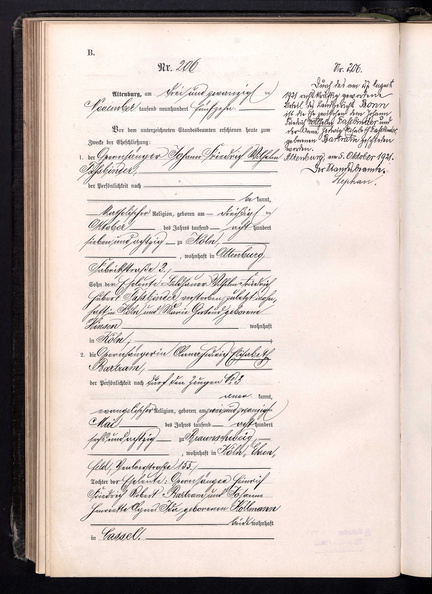 B.
Nr. 206
Altenburg, am drei und zwanzigsten
November tausend neunhundert fünfzehn
Vor dem unterzeichneten Standesbeamten erschienen heute zum
Zwecke der Eheschließung:
1. der Opernsänger Johann Friedrich Wilhelm
Faßbinder,
der Persönlichkeit nach
be kannt,
katholischer Religion, geboren am dreißigsten
Oktober des Jahres tausend acht hundert
sieben und achtzig zu Köln
, wohnhaft in Altenburg
Fabrikstraße 2,
Sohn der Eheleute Wilhelm Friedrich
Hubert Faßbinder, verstorben, zuletzt wohn-
haft in Köln und Maria Gertrud geborene
wohnhaft
in Köln,
2. die Opernsängerin Anna Hedwig Elisabeth
Bartram,
der Persönlichkeit nach durch den Zeugen
aner kannt,
evangelischer Religion, geboren am zwei und zwanzigsten
Mai des Jahres tausend acht hundert
sechs und achtzig zu Braunschweig
, wohnhaft in Köln, Ehren-
feld, 155,
Tochter der Eheleute: Opernsänger Heinrich
Friedrich Robert Bartram und Johanna
Henriette Agnes Ida geborenen Kollmann
beide wohnhaft
in Cassel.
Nr. 206.
Durch das am 17. August
1921 rechtskräftig gewordene
Urteil des Landgerichts Bonn
ist die Ehe zwischen dem Johann
Friedrich Wilhelm Faßbinder und
der Anna Hedwig Elisabeth Faßbinder
geborenen Bartram geschieden
worden.
Altenburg, am 5. Oktober 1921.
Der Standesbeamte.
Stephan.